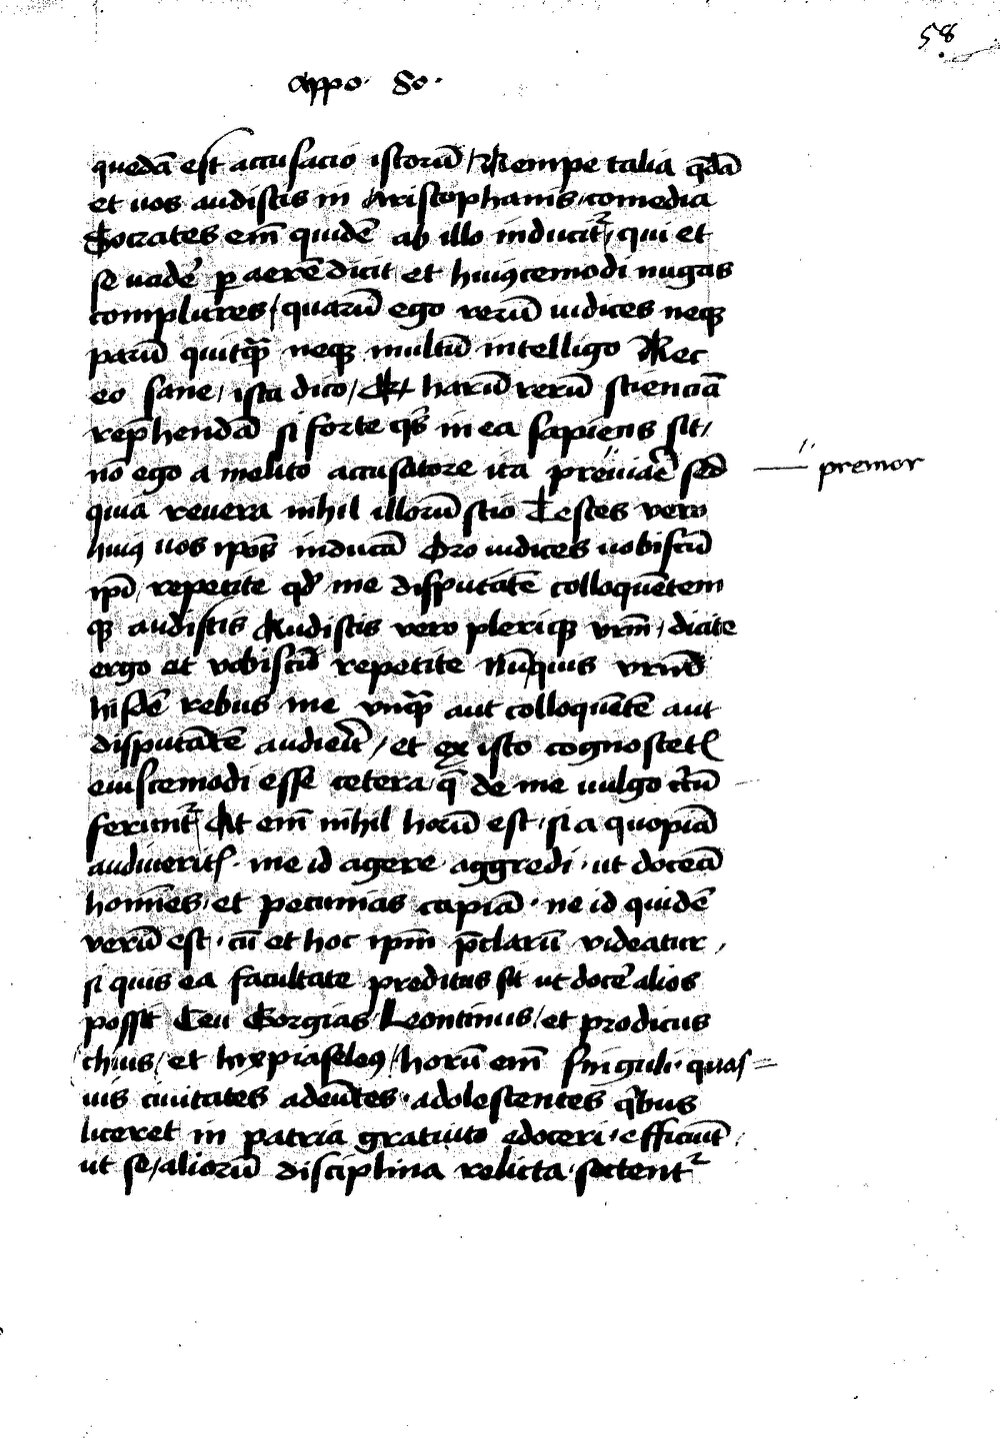 58
appo. So.
quedā est accusacio istorū / Nempe talia qdā
et uos audistis in Aristophanis comedia
Socrates em̄ quidē ab illo inducit᷑, qui et
se uadē p aerē dicit et huiꝯcemodi nugas
complures / quarū ego rerū iudices neqꝫ
parū quitqꝫ neqꝫ multū intelligo Nec
eo sane / ista dico / Ut harū rerū scienciā
rep̄hendā si forte qs in ea sapiens sit /
nō ego a melito accusatore ita sed
premor
quia reuera nihil illorū scio Testes vero
huiꝯ uos ip̄os inducā O iudices uobiscū
ip̄i repetite qd me disputātē colloquētem
qꝫ audistis Audistis vero pleriqꝫ vrm̄ / dicite
ergo et vobiscū repetite Nūquis vrm̄
hisdē rebus me vnqꝫ aut colloquētē aut
disputātē audierit / et ex isto cognoscetꝭ
eiuscemodi esse cetera q̄ de me uulgo
ferunt᷑ At em̄ nihil horū est / si a quopiā
audiueritꝭ . me id agere aggredi . ut doceā
homīes . et pecunias capiā . ne id quidē
verū est . cū et hoc ip̄m p̄clarū videatur ,
si quis ea facultate preditus sit ut docē alios
possit Ceu Gorgias Leontinus / et prodicus
chius / et hyppias eleꝯ / horū em̄ singuli . quas=
uis ciuitates adeūtes . adolescentes qbus
liceret in patria gratuito edoceri . efficiūt /
ut se / aliorū disciplina relicta . sectent᷑